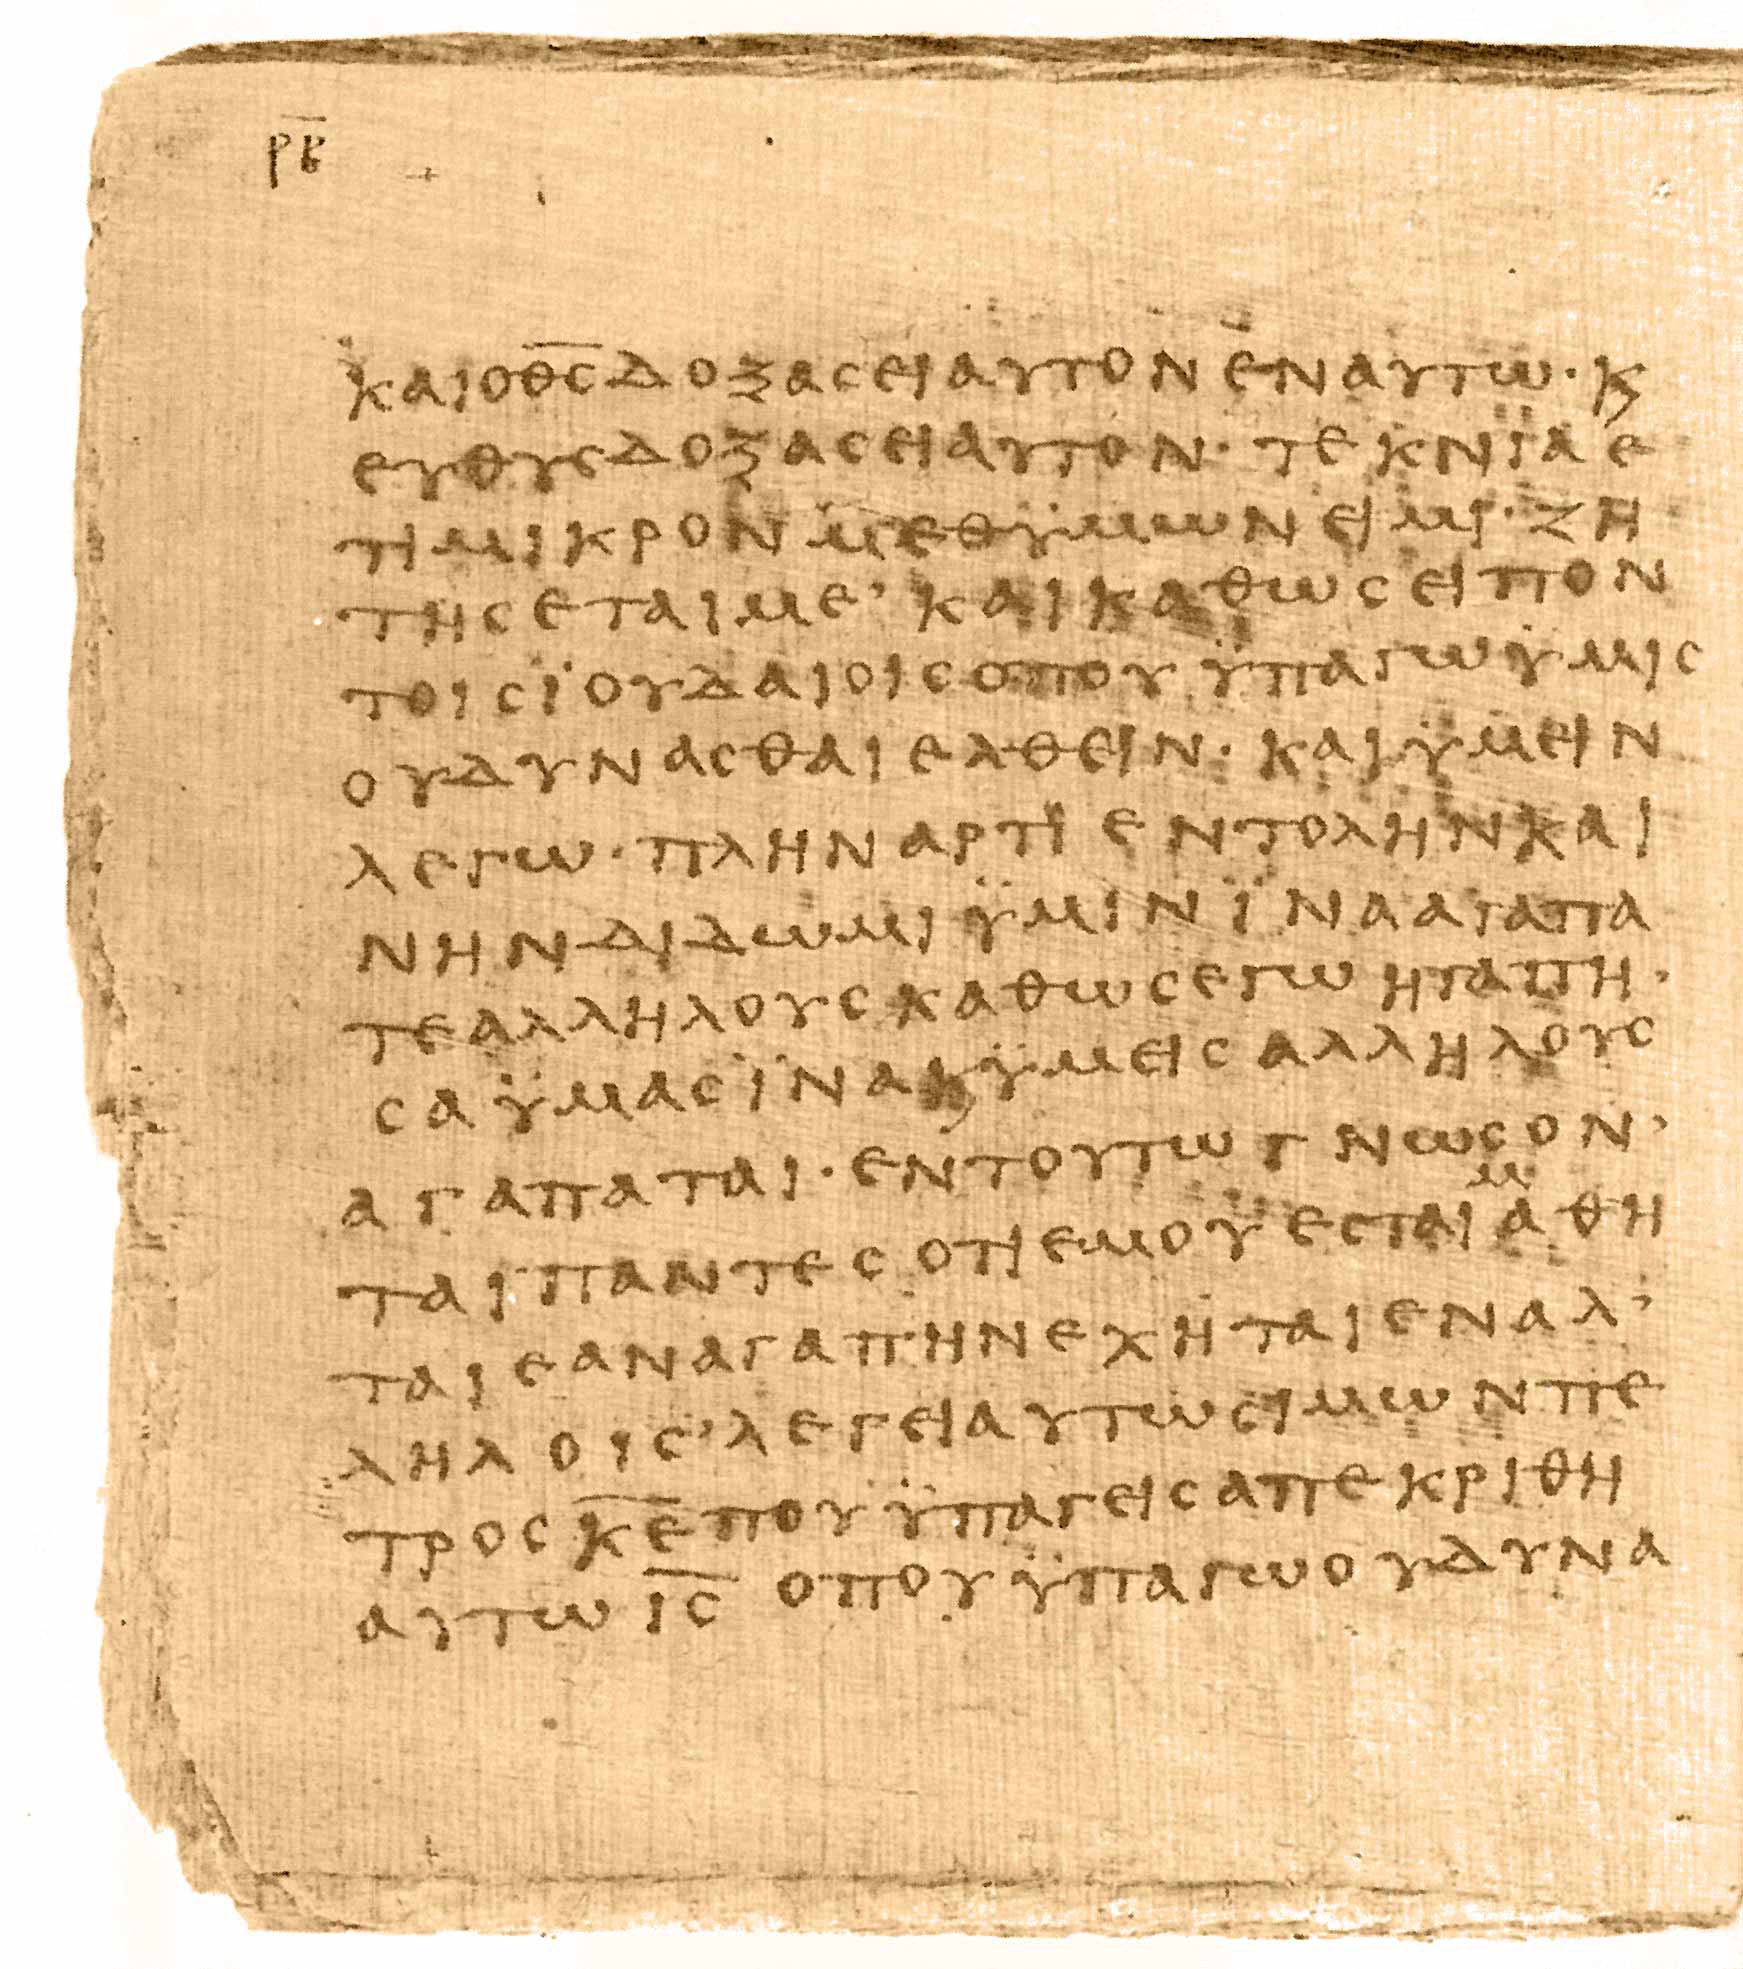 ρβ̅
καιοθ̅ς̅δοξασειαυτονεναυτω·κ
ευθυςδοξασειαυτον·τεκνιαε
τιμικρονμεθϋμωνειμι·ζη
τησεταιμε’καικαθωςειπον
τοιςϊουδαιοιςοπουϋπαγωϋμις
ουδυνασθαιελθειν·καιϋμειν
λεγω·πληναρτιεντοληνκαι
νηνδιδωμιϋμινϊνααγαπα
τεαλληλουςκαθωςεγωηγαπη·
σαϋμαςϊνακϋμειςαλληλους
αγαπαται·εντουτωγνωσον·
ταιπαντεςοτιεμουεσται\μ/αθη
ταιεαναγαπηνεχηταιεναλ’
ληλοις’λεγειαυτωσιμωνπε
τροςκ̅ε̅πουϋπαγειςαπεκριθη
αυτωι̅ς̅ οπουϋπαγωουδυνα